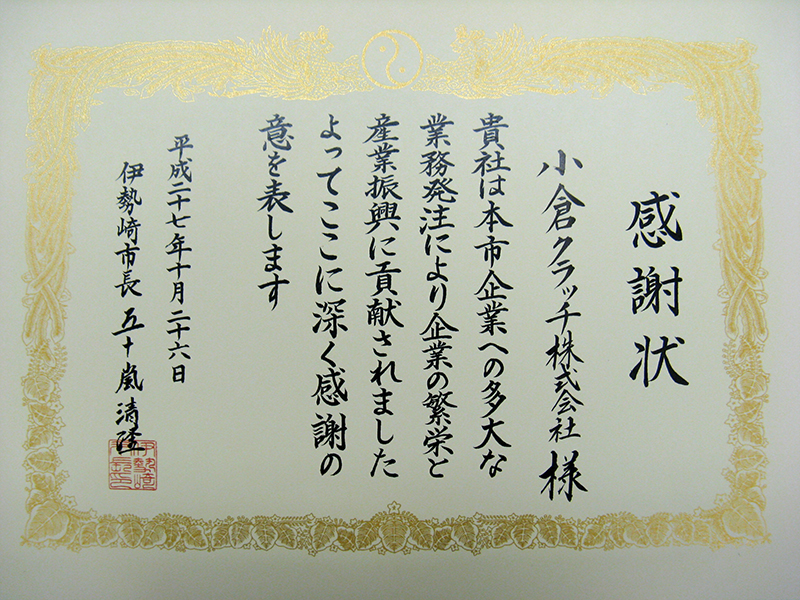 感謝状
小倉クラッチ株式会社 様
貴社は本市企業への多大な
業務発注により企業の繁栄と
産業振興に貢献されました
よってここに深く感謝の
意を表します
平成二十七年十月二十六日
伊勢崎市長 五十嵐 清隆